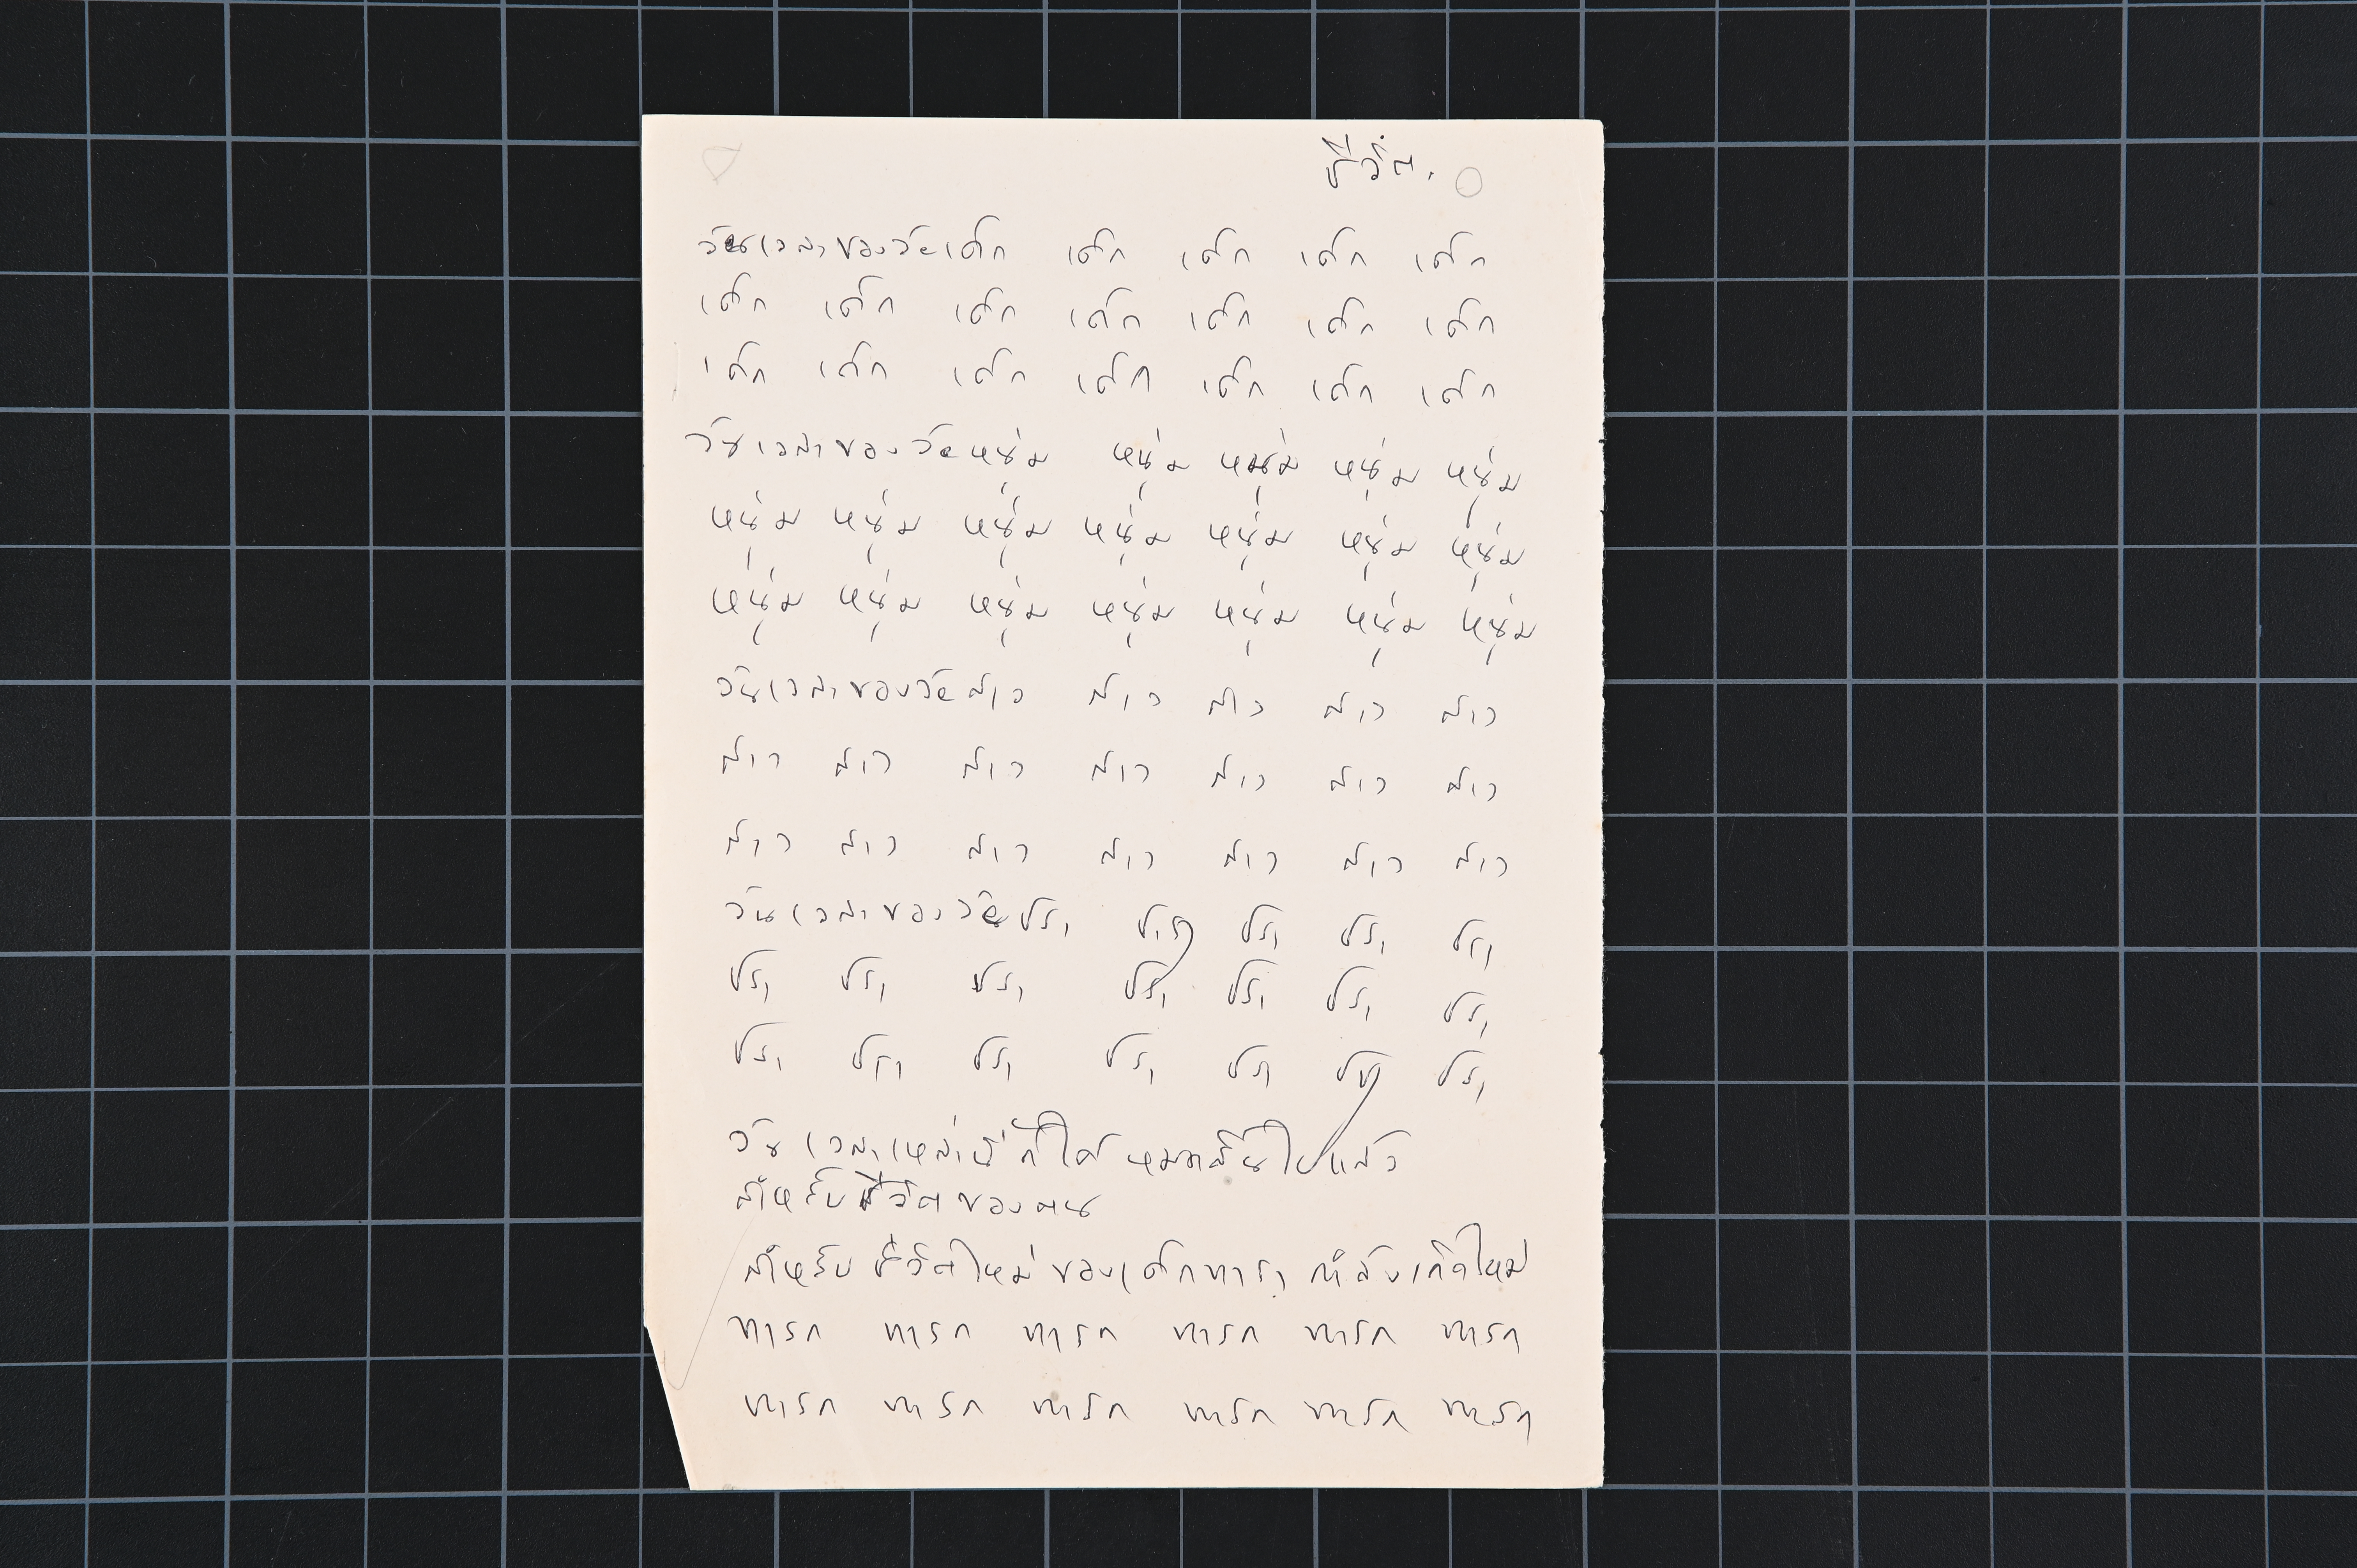 ชีวิต.
วันเวลาของวัยเด็ก เด็ก เด็ก เด็ก เด็ก
เด็ก เด็ก เด็ก เด็ก เด็ก เด็ก เด็ก
เด็ก เด็ก เด็ก เด็ก เด็ก เด็ก เด็ก
วันเวลาของวัยหนุ่ม หนุ่ม หนุ่ม หนุ่ม หนุ่ม
หนุ่ม หนุ่ม หนุ่ม หนุ่ม หนุ่ม หนุ่ม หนุ่ม
หนุ่ม หนุ่ม หนุ่ม หนุ่ม หนุ่ม หนุ่ม หนุ่ม
วันเวลาของวัยสาว สาว สาว สาว สาว
สาว สาว สาว สาว สาว สาว สาว
สาว สาว สาว สาว สาว สาว สาว
วันเวลาของวัยชรา ชรา ชรา ชรา
ชรา ชรา ชรา ชรา ชรา ชรา ชรา
ชรา ชรา ชรา ชรา ชรา ชรา
วันเวลาเหล่านี้ก็ได้หมดสิ้นไปแล้ว
สำหรับชีวิตของคน
สำหรับชีวิตใหม่ของเด็กทารก กำลังเกิดใหม่
ทารก ทารก ทารก ทารก ทารก ทารก
ทารก ทารก ทารก ทารก ทารก ทารก